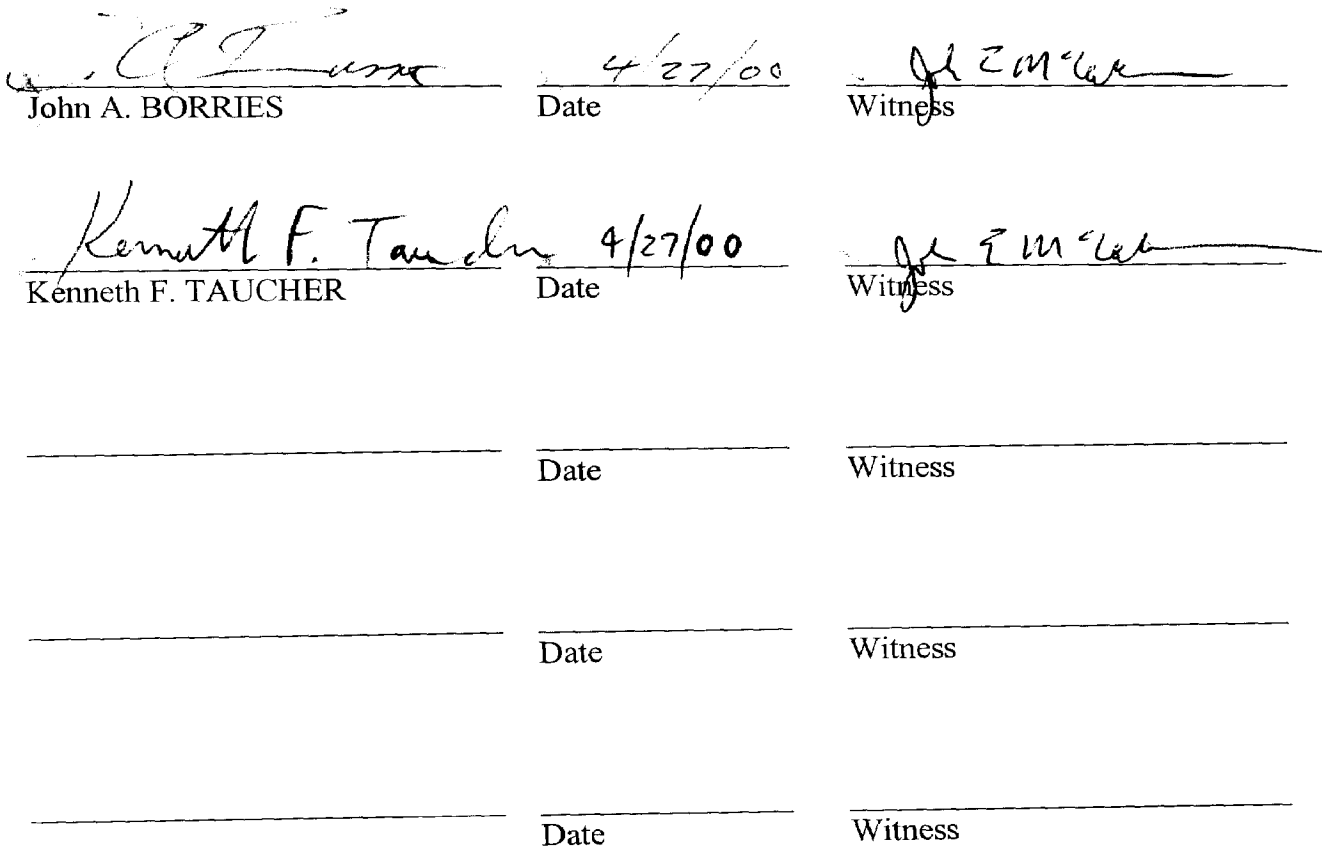 4/27/00
John A. BORRIES Date Witness
Kenneth F. Taucher 4/27/00
Kenneth F. TAUCHER Date Witness
Date Witness
Date Witness
Date Witness